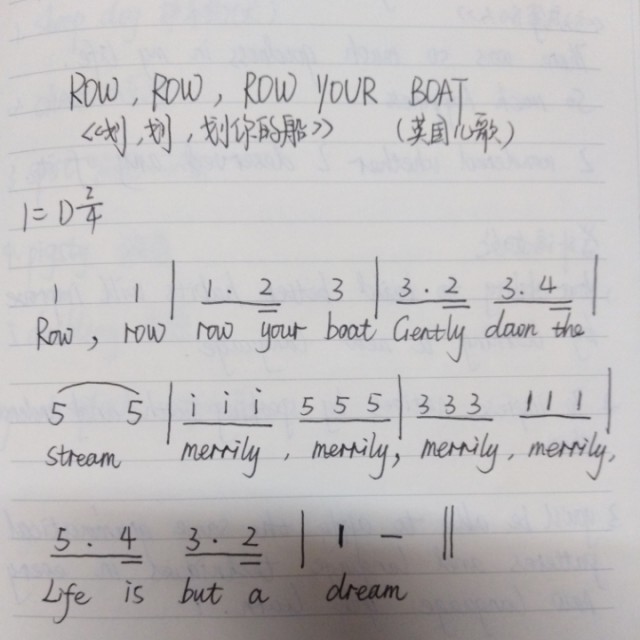 ROW, ROW, ROW YOUR BOAT
《划,划,划你的船》 (英国儿歌)
1=D 2/4
1 1 | 1. 2 3 | 3. 2 3. 4 |
Row, row row your boat Gently daon the
5 5 | i i i 5 5 5 | 3 3 3 1 1 1 |
stream merrily, merrily, merrily, merrily,
5. 4 3. 2 | 1 - ||
Life is but a dream